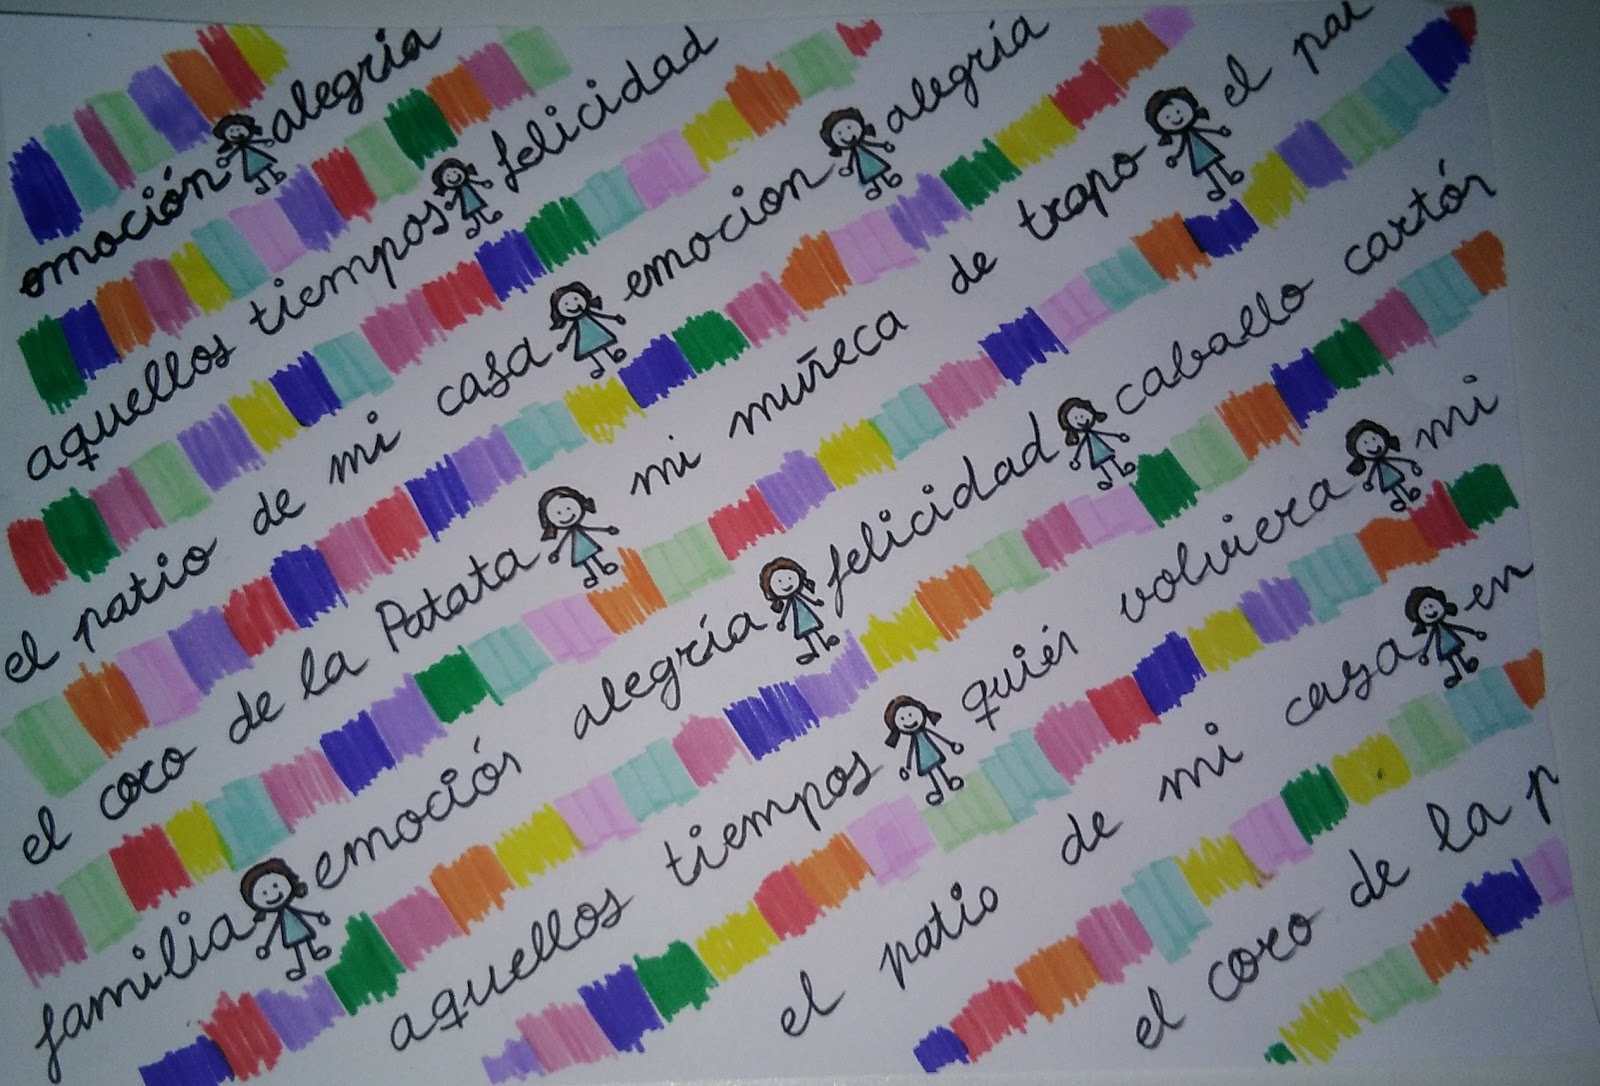 emoción alegría
aquellos tiempos felicidad
el patio de mi casa emocion alegría
el coro de la Patata mi muñeca de trapo el
familia emoción alegría felicidad caballo cartón
aquellos tiempos quién volviera mi
el patio de mi casa en
el coro de la p